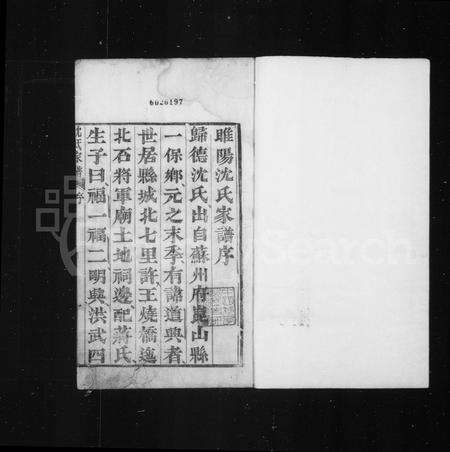 6020197
睢陽沈氏家譜序
歸德沈氏出自蘇州府崑山縣
一保鄉元之末季有諱道興者
世居縣城北七里許王燒橋邊
北石將軍廟土地祠邊配蔣氏
生子曰福一福二明興洪武四
沈氏家譜 序